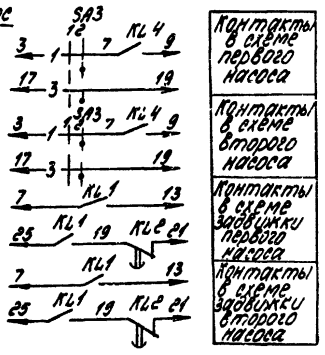 ОС SA3
1 2
3 1 7 KL4 9
17 3 19
SA3
1 2
3 1 7 KL4 9
17 3 19
7 KL1 13
25 KL1 19 KL2 21
7 KL1 13
25 KL1 19 KL2 21
Контакты
в схеме
первого
насоса
Контакты
в схеме
второго
насоса
Контакты
в схеме
задвижки
первого
насоса
Контакты
в схеме
задвижки
второго
насоса